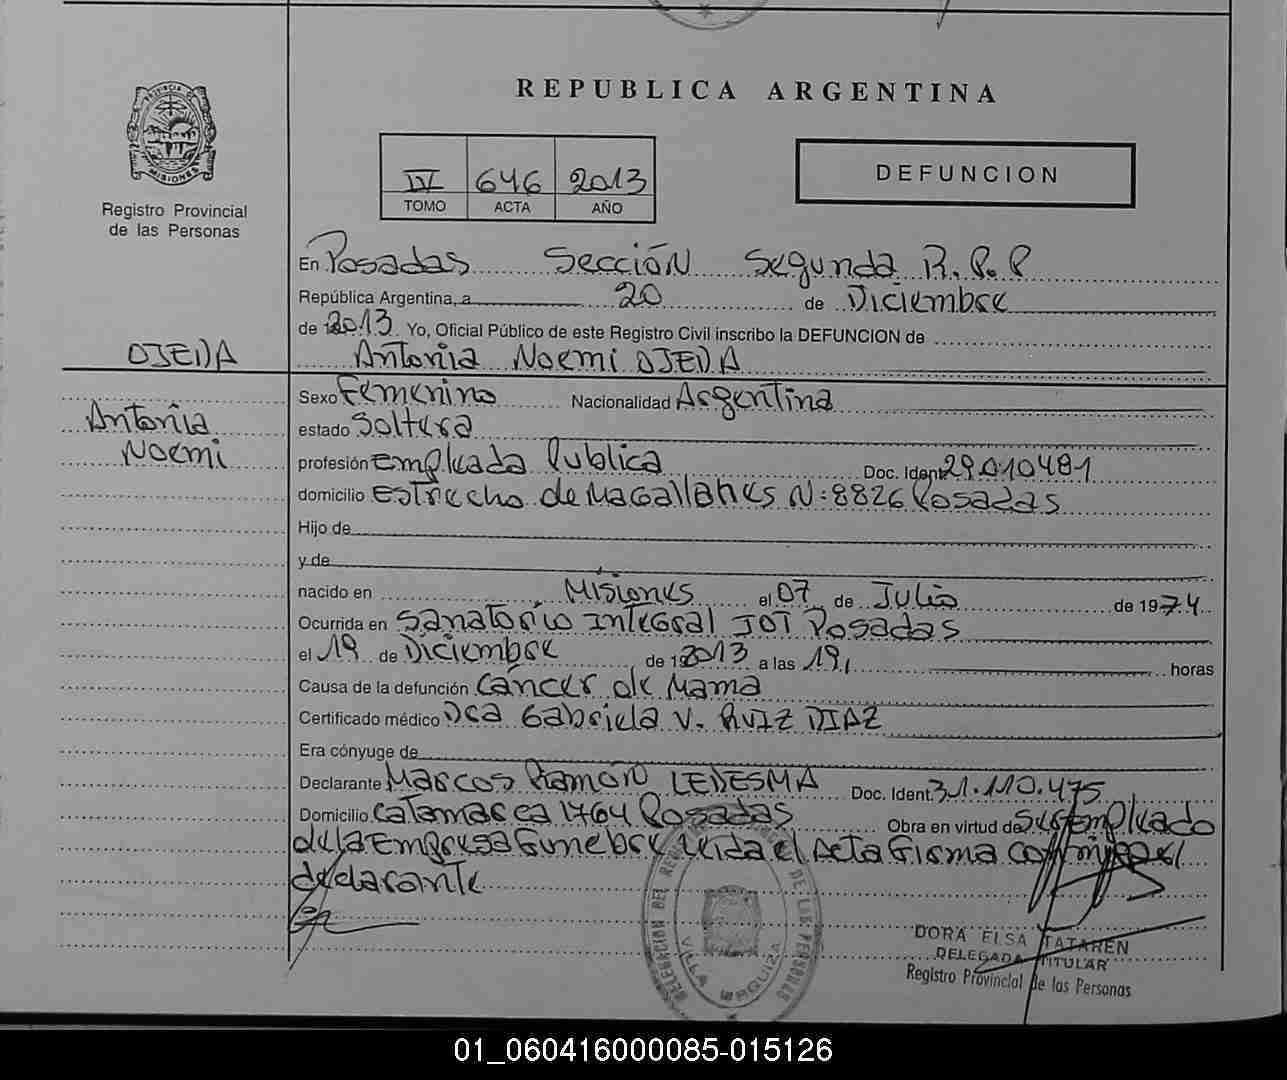 REPUBLICA ARGENTINA
PROVINCIA DE
MISIONES
Registro Provincial
de las Personas
IV 646 2013
TOMO ACTA AÑO
DEFUNCION
En Posadas Sección Segunda R.P.P
República Argentina, a 20 de Diciembre
de 12013 Yo, Oficial Público de este Registro Civil inscribo la DEFUNCION de
OJEDA Antonia Noemi OJEDA
Antonia
Noemi
Sexo Femenino Nacionalidad Argentina
estado Soltera
profesión Empleada Publica Doc. Ident. 29.010.481
domicilio Estrecho de Magallanes N: 8826 Posadas
Hijo de
y de
nacido en Misiones el 07 de Julio de 1974
Ocurrida en Sanatorio Integral IOT Posadas
el 19 de Diciembre de 12013 a las 19, horas
Causa de la defunción Cáncer de Mama
Certificado médico Dra Gabriela V. RUIZ DIAZ
Era cónyuge de
Declarante Marcos Ramón LEDESMA Doc. Ident. 31.110.475
Domicilio Catamarca 1764 Posadas Obra en virtud de Ser Empleado
de la Empresa Funebre Leida el Acta Firma conmigo el
declarante
DELEGACION DEL REGISTRO DE LAS PERSONAS
VILLA
DORA ELSA TATAREN
DELEGADA TITULAR
Registro Provincial de las Personas
01_060416000085-015126